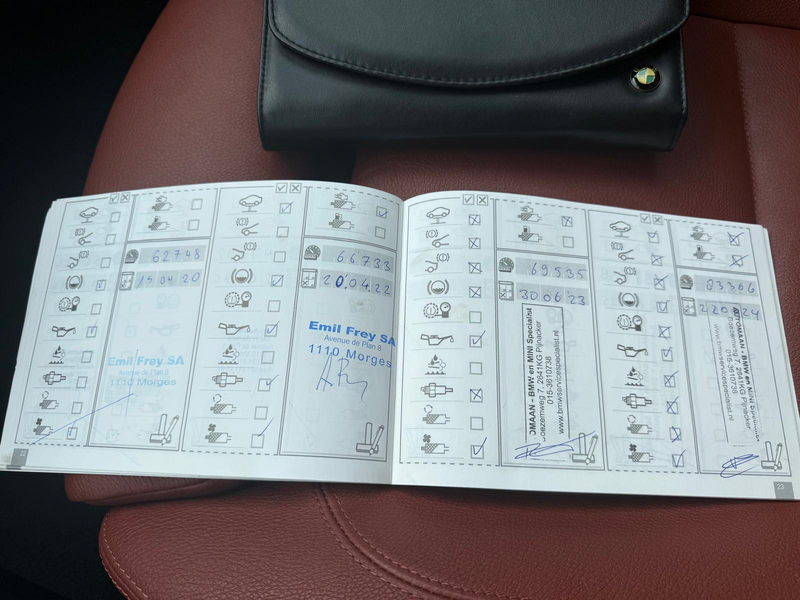 62748
15 04 20
Emil Frey SA
Avenue de Plan 8
1110 Morges
66733
20.04.22
Emil Frey SA
Avenue de Plan 8
1110 Morges
69535
30 06 23
OMAAN - BMW en MINI Specialist
oezemweg 7, 2641KG Pijnacker
015-3610738
www.bmwservicespecialist.nl
83306
24
TOMAAN - BMW en MINI Specialist
2641KG Pijnacker
015-3610738
www.bmwservicespecialist.nl
23